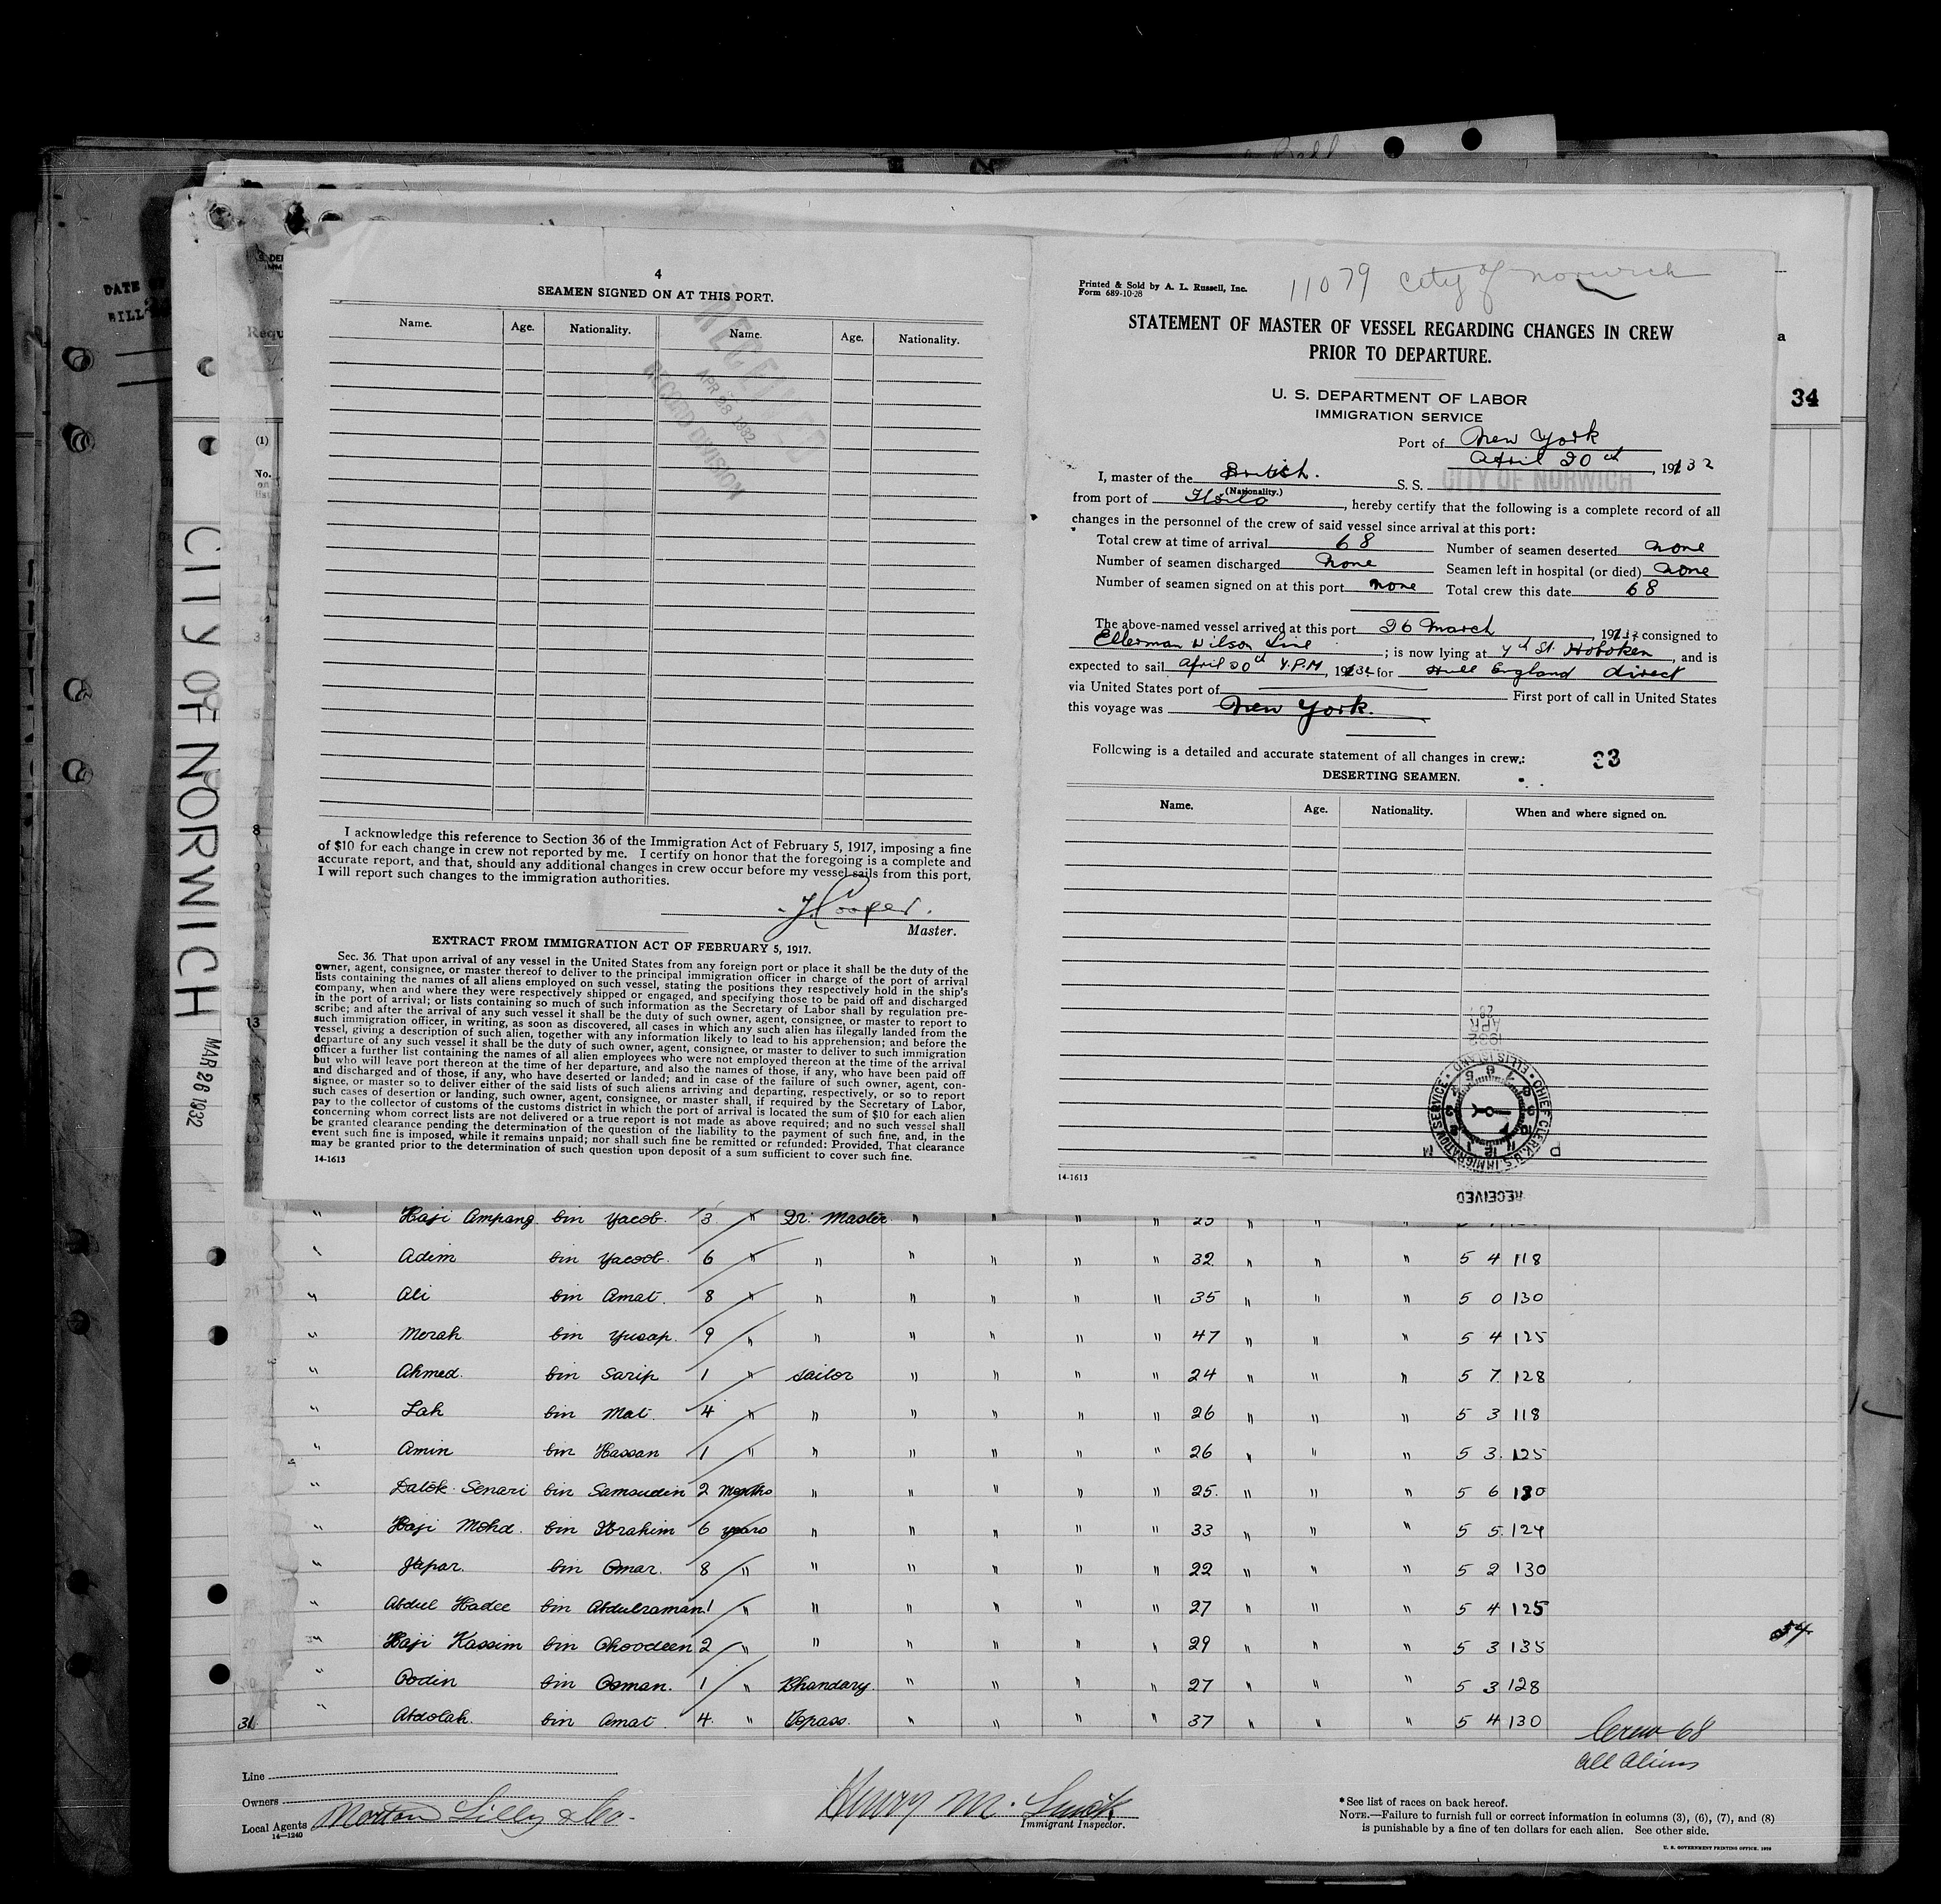 DATE
BILL
CITY OF NORWICH
MAR 26 1932
S. DE
Requ
(1)
No.
on
list
4
SEAMEN SIGNED ON AT THIS PORT.
Name. Age. Nationality. Name. Age. Nationality.
RECEIVED
APR 28 1932
RECORD DIVISION
I acknowledge this reference to Section 36 of the Immigration Act of February 5, 1917, imposing a fine
of $10 for each change in crew not reported by me. I certify on honor that the foregoing is a complete and
accurate report, and that, should any additional changes in crew occur before my vessel sails from this port,
I will report such changes to the immigration authorities.
J Cooper.
Master.
EXTRACT FROM IMMIGRATION ACT OF FEBRUARY 5, 1917.
Sec. 36. That upon arrival of any vessel in the United States from any foreign port or place it shall be the duty of the
owner, agent, consignee, or master thereof to deliver to the principal immigration officer in charge of the port of arrival
lists containing the names of all aliens employed on such vessel, stating the positions they respectively hold in the ship's
company, when and where they were respectively shipped or engaged, and specifying those to be paid off and discharged
in the port of arrival; or lists containing so much of such information as the Secretary of Labor shall by regulation pre-
scribe; and after the arrival of any such vessel it shall be the duty of such owner, agent, consignee, or master to report to
such immigration officer, in writing, as soon as discovered, all cases in which any such alien has illegally landed from the
vessel, giving a description of such alien, together with any information likely to lead to his apprehension; and before the
departure of any such vessel it shall be the duty of such owner, agent, consignee, or master to deliver to such immigration
officer a further list containing the names of all alien employees who were not employed thereon at the time of the arrival
but who will leave port thereon at the time of her departure, and also the names of those, if any, who have been paid off
and discharged and of those, if any, who have deserted or landed; and in case of the failure of such owner, agent, con-
signee, or master so to deliver either of the said lists of such aliens arriving and departing, respectively, or so to report
such cases of desertion or landing, such owner, agent, consignee, or master shall, if required by the Secretary of Labor,
pay to the collector of customs of the customs district in which the port of arrival is located the sum of $10 for each alien
concerning whom correct lists are not delivered or a true report is not made as above required; and no such vessel shall
be granted clearance pending the determination of the question of the liability to the payment of such fine, and, in the
event such fine is imposed, while it remains unpaid; nor shall such fine be remitted or refunded: Provided, That clearance
may be granted prior to the determination of such question upon deposit of a sum sufficient to cover such fine.
14-1613
Printed & Sold by A. L. Russell, Inc.
Form 689-10-28
11079 City of Norwich
STATEMENT OF MASTER OF VESSEL REGARDING CHANGES IN CREW
PRIOR TO DEPARTURE.
U. S. DEPARTMENT OF LABOR
IMMIGRATION SERVICE
Port of New York
April 20th, 1932
I, master of the British. S. S. CITY OF NORWICH
(Nationality.)
from port of Iloilo, hereby certify that the following is a complete record of all
changes in the personnel of the crew of said vessel since arrival at this port:
Total crew at time of arrival 68 Number of seamen deserted none
Number of seamen discharged None Seamen left in hospital (or died) none
Number of seamen signed on at this port none Total crew this date 68
The above-named vessel arrived at this port 26 March, 1932 consigned to
Ellerman Wilson Line; is now lying at 4th St. Hoboken, and is
expected to sail April 20th 4.P.M, 1932 for Hull England direct
via United States port of First port of call in United States
this voyage was New York.
Following is a detailed and accurate statement of all changes in crew:
33
DESERTING SEAMEN.
Name. Age. Nationality. When and where signed on.
1932
APR
CHIEF CLERK, U.S. IMMIGRATION SERVICE · ELLIS ISLAND
P M
RECEIVED
14-1613
34
" Haji Ampang bin Yacob. 3 " Dr. Master " " " " 25 " " "
" Adim bin Yacoob. 6 " " " " " " 32 " " " 5 4 118
" Ali bin Amat. 8 " " " " " " 35 " " " 5 0 130
" Merah bin Yusop. 9 " " " " " " 47 " " " 5 4 125
" Ahmed. bin Sarip 1 " sailor " " " " 24 " " " 5 7 128
" Lah bin Mat. 4 " " " " " " 26 " " " 5 3 118
" Amin bin Hassan 1 " " " " " " 26 " " " 5 3 125
" Datok Senari bin Samsudin 2 Months " " " " " 25 " " " 5 6 130
" Haji Mohd. bin Ibrahim 6 years " " " " " 33 " " " 5 5 124
" Japar. bin Omar. 8 " " " " " " 22 " " " 5 2 130
" Abdul Hadee bin Abdulraman 1 " " " " " " 27 " " " 5 4 125
" Haji Kassim bin Choodeen 2 " " " " " " 29 " " " 5 3 135
" Oodin bin Osman. 1 " Bhandary. " " " " 27 " " " 5 3 128
31 " Abdolah. bin Amat. 4 " Topass. " " " " 37 " " " 5 4 130
Crew 68
all aliens
Line
Owners
Local Agents Morton Lilly & Co.
14—1240
Henry M.
Immigrant Inspector.
* See list of races on back hereof.
NOTE.—Failure to furnish full or correct information in columns (3), (6), (7), and (8)
is punishable by a fine of ten dollars for each alien. See other side.
U. S. GOVERNMENT PRINTING OFFICE